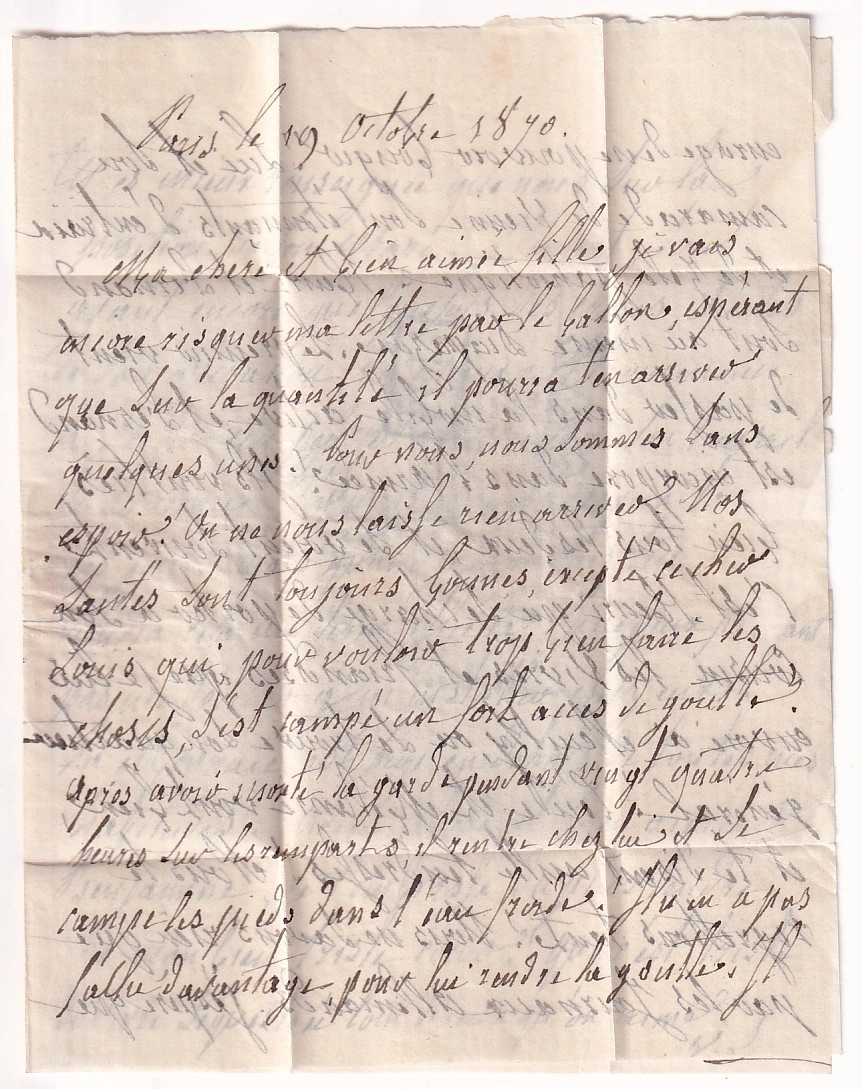 Paris le 19 Octobre 1870.
Ma chère et bien aimée fille, je vais
encore risquer ma lettre par le ballon, espérant
que sur la quantité il pourra t'en arriver
quelques unes. Pour nous, nous sommes sans
espoir! On ne nous laisse rien arriver. Nos
santés sont toujours bonnes, excepté ce cher
Louis qui pour vouloir trop bien faire les
choses, s'est campé un fort accès de goutte.
après avoir monté la garde pendant vingt quatre
heures sur les remparts, il rentre chez lui et se
campe les pieds dans l'eau froide! Il n'en a pas
fallu davantage pour lui rendre la goutte. Il